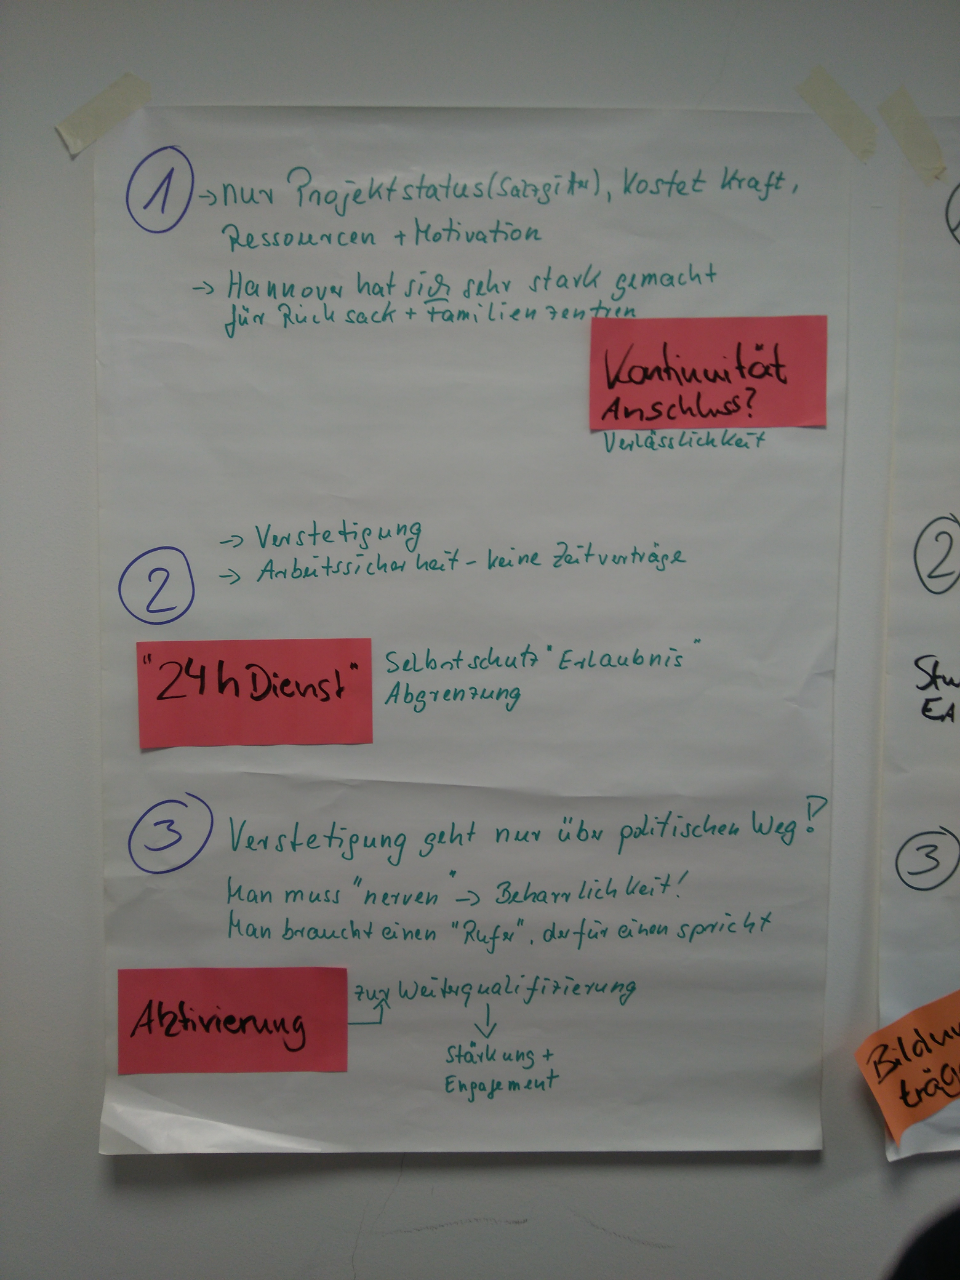 1
→ nur Projektstatus (Salzgitter), kostet Kraft,
Ressourcen + Motivation
→ Hannover hat sich sehr stark gemacht
für Rucksack + Familienzentren
Kontinuität
Anschluss?
Verlässlichkeit
→ Verstetigung
2
→ Arbeitssicherheit - keine Zeitverträge
"24h Dienst"
Selbstschutz "Erlaubnis"
Abgrenzung
3
Verstetigung geht nur über politischen Weg!
Man muss "nerven" → Beharrlichkeit!
Man braucht einen "Rufer", der für einen spricht
Aktivierung
zur Weiterqualifizierung
Stärkung +
Engagement
2
3